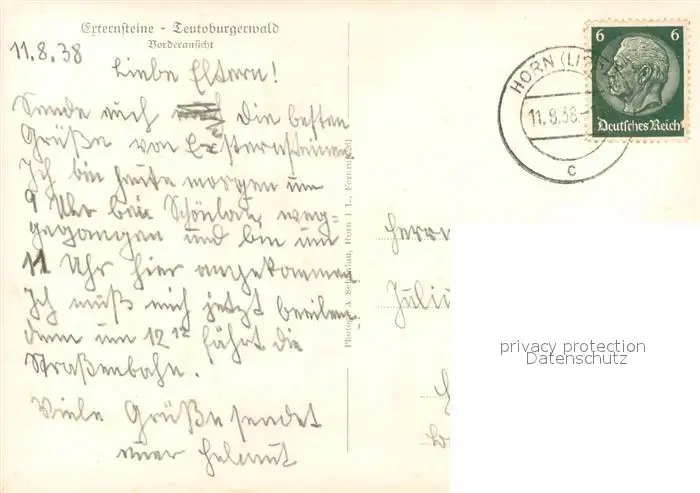 Externsteine - Teutoburgerwald
Vorderansicht
11.8.38
Liebe Eltern!
Sende euch die besten
Grüße von Externsteinen
Ich bin heute morgen um
9 Uhr bei weg-
gegangen und bin um
11 Uhr hier angekommen.
Ich muß mich jetzt beeilen
denn um 12 fährt die
Straßenbahn.
Viele Grüße sendet
euer Helmut
Horn i. L.,
HORN (LIPPE)
11.8.38
c
6 6
Deutsches Reich
Herrn
Juliu
privacy protection
Datenschutz